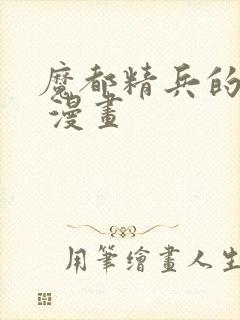 魔都精兵的
漫畫
用筆繪畫人生